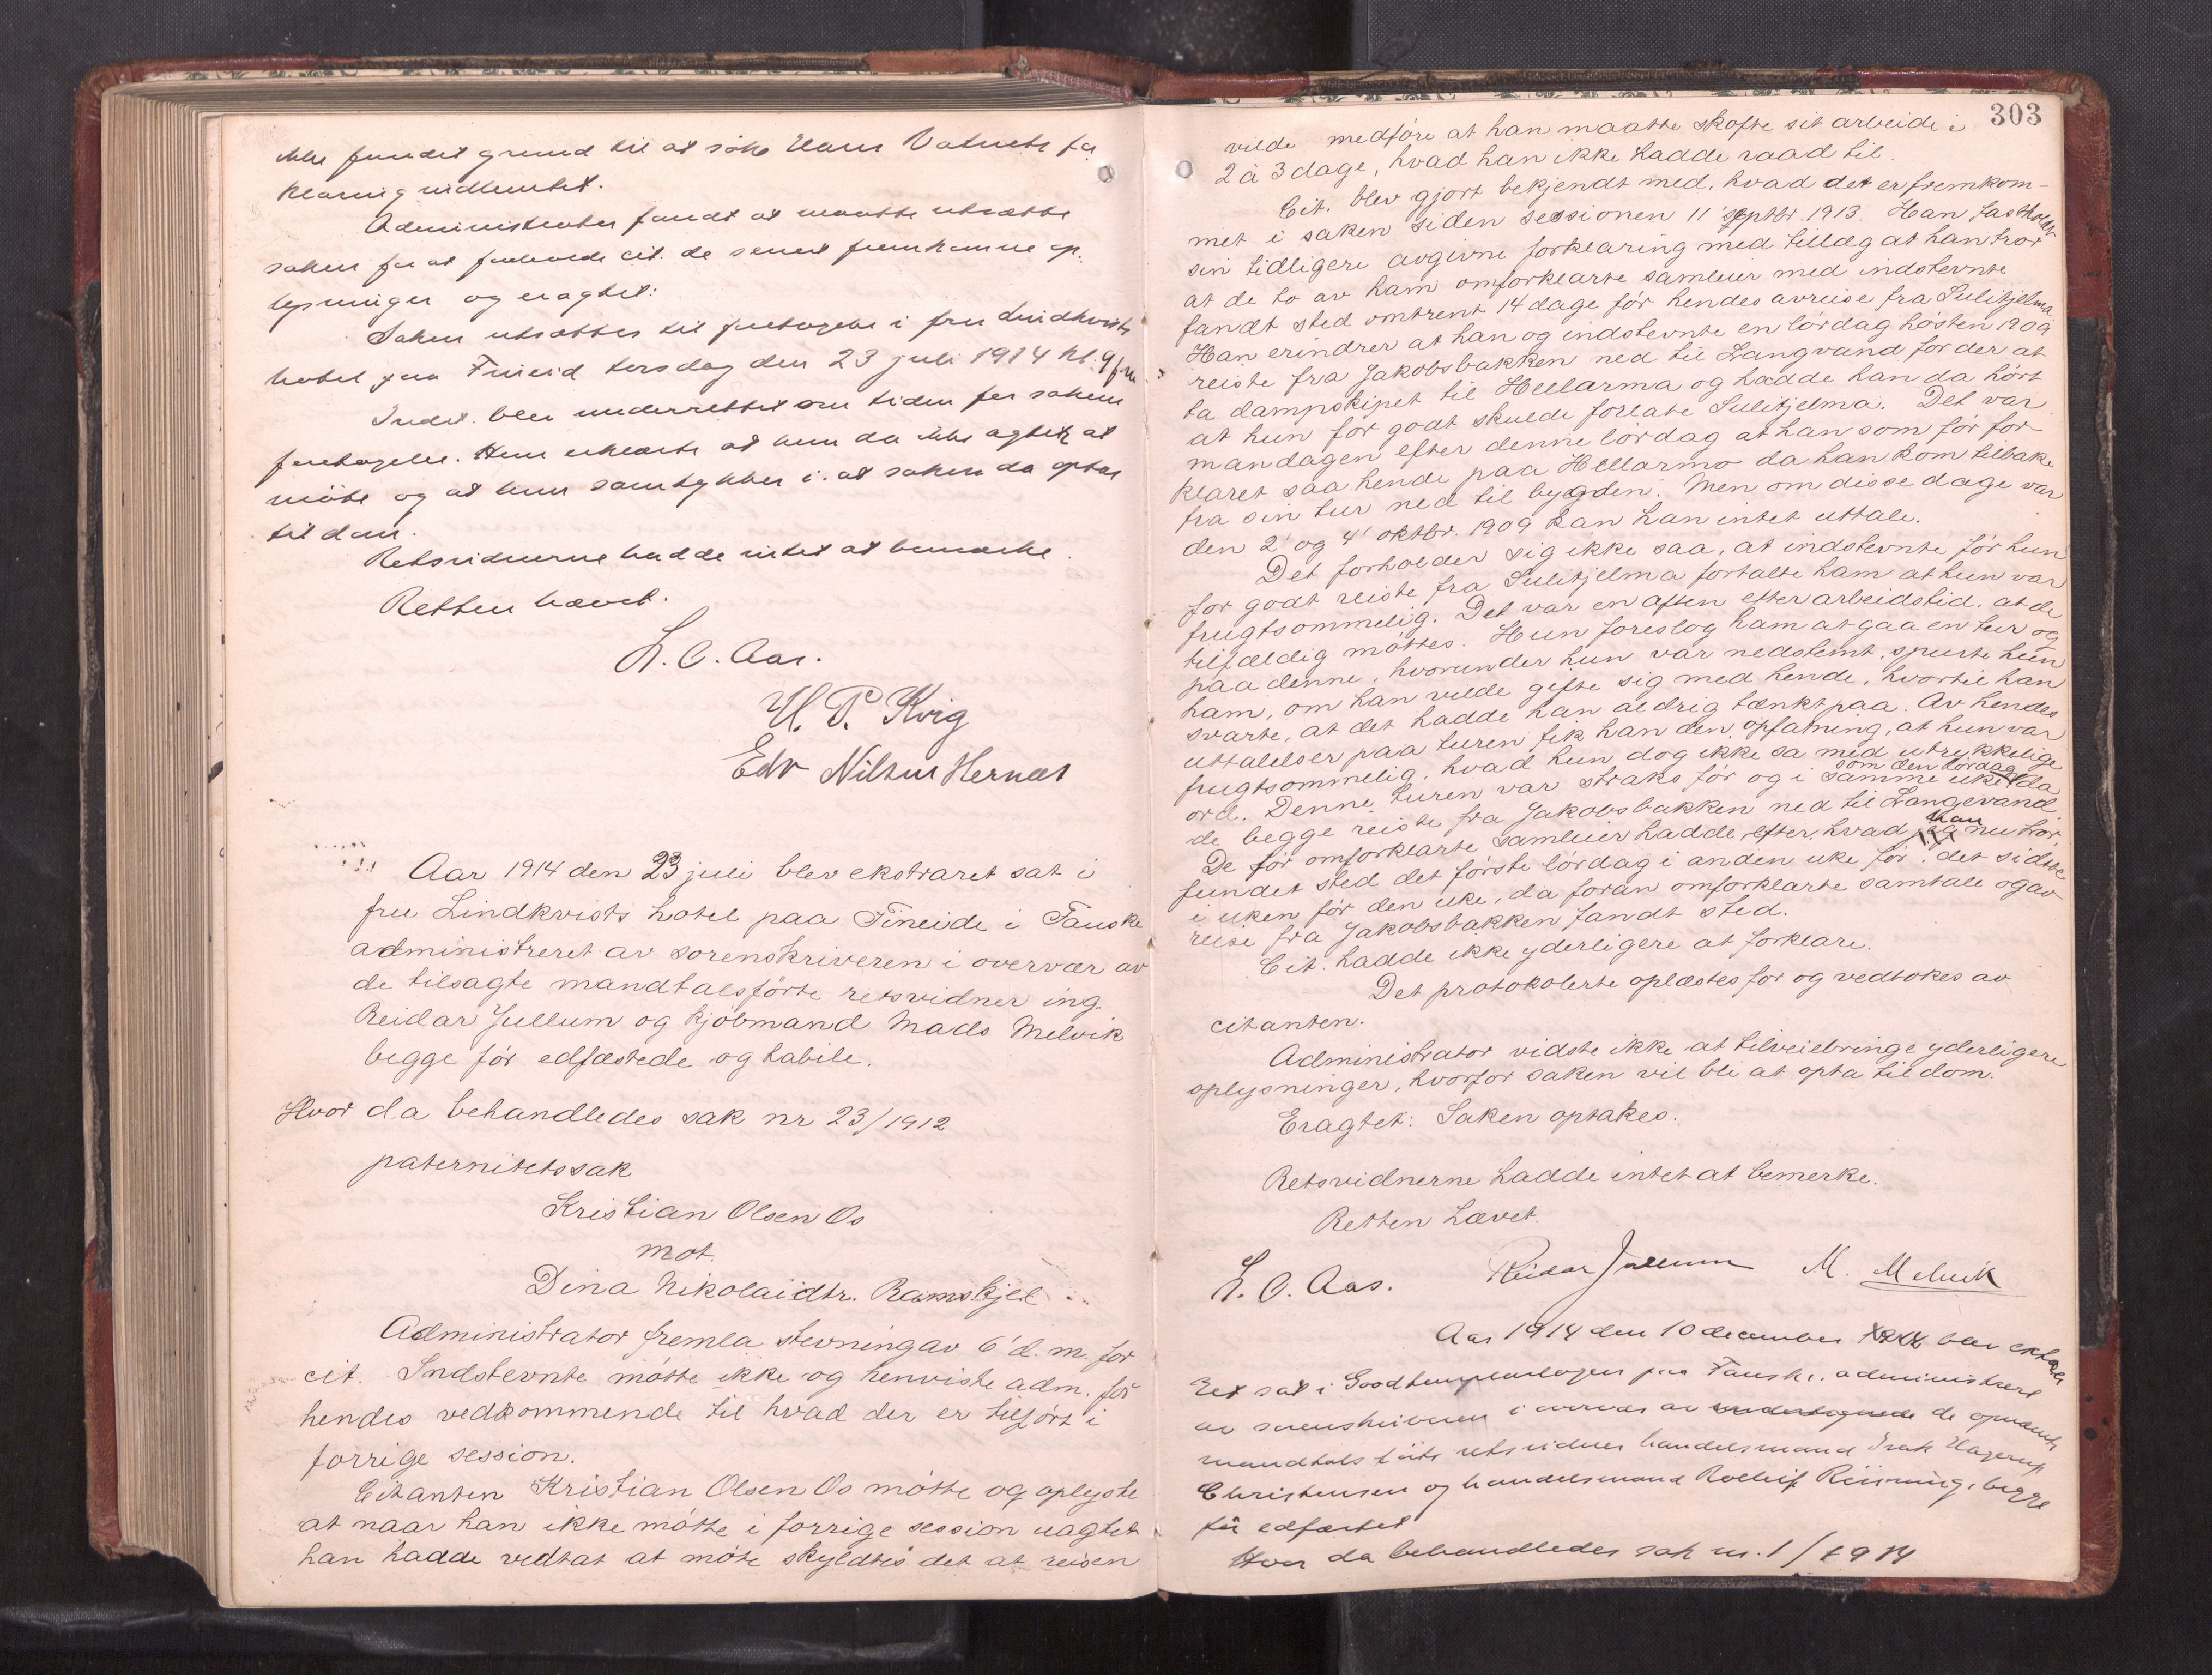 ikke fundet grund til at söke Hans Vatnets for
klaring indhentet.
Administrator fandt at maatte utsætte
saken for at foreholde cit. de senest fremkomne op-
lysninger og eragtet:
Saken utsættes til foretagelse i fru Lindkvists
hotel paa Fineid torsdag den 23 juli 1914 kl. 9 fm
Indst. blev underrettet om tiden for sakens
foretagelse. Hun erklærte at hun da ikke agter at
möte og at hun samtykker i at saken da optas
til dom.
Retsvidnerne hadde intet at bemærke.
Retten hævet.
L. O. Aas.
H. P. Kvig
Edv Nilsen Hernæs
Aar 1914 den 23 juli blev ekstraret sat i
fru Lindkvists hotel paa Fineide i Fauske
administreret av sorenskriveren i overvær av
de tilsagte mandtalsførte retsvidner ing.
Reidar Jullum og kjøbmand Mads Melvik
begge før edfæstede og habile.
Hvor da behandledes sak nr 23/1912
paternitetssak
Kristian Olsen Os
mot
Dina Nikolaidtr. Ramskjel
Administrator fremla stevning av 6' d. m. for
cit. Indstevnte møtte ikke og henviste adm. for
hendes vedkommende til hvad der er tilført i
forrige session.
Citanten Kristian Olsen Os møtte og oplyste
at naar han ikke møtte i forrige session uagtet
han hadde vedtat at møte skyldtes det at reisen
303
vilde medføre at han maatte skofte sit arbeide i
2 à 3 dage, hvad han ikke hadde raad til.
Cit. blev gjort bekjendt med, hvad det er fremkom-
met i saken siden sessionen 11' septbr. 1913. Han fastholdt
sin tidligere avgivne forklaring med tillæg at han tror
at de to av ham omforklarte samleier med indstevnte
fandt sted omtrent 14 dage før hendes avreise fra Sulitjelma.
Han erindrer at han og indstevnte en lørdag høsten 1909
reiste fra Jakobsbakken ned til Langvand for der at
ta dampskipet til Hellarma og hadde han da hørt
at hun for godt skulde forlate Sulitjelma. Det var
mandagen efter denne lørdag at han som før for-
klaret saa hende paa Hellarmo da han kom tilbake
fra sin tur ned til bygden. Men om disse dage var
den 2' og 4' oktbr. 1909 kan han intet uttale.
Det forholder sig ikke saa, at indstevnte før hun
for godt reiste fra Sulitjelma fortalte ham at hun var
frugtsommelig. Det var en aften efter arbeidstid, at de
tilfældig møttes. Hun foreslog ham at gaa en tur og
paa denne, hvorunder hun var nedstemt, spurte hun
ham, om han vilde gifte sig med hende, hvortil han
svarte, at det hadde han aldrig tænkt paa. Av hendes
uttalelser paa turen fik han den opfatning, at hun var
frugtsommelig, hvad hun dog ikke sa med utrykkelige
ord. Denne turen var straks før og i samme uke som den lørdag da
de begge reiste fra Jakobsbakken ned til Langevand.
De før omforklarte samleier hadde, efter hvad han nu tror
fundet sted det første lørdag i anden uke før, det sidste
i uken før den uke, da foran omforklarte samtale og av
reise fra Jakobsbakken fandt sted.
Cit. hadde ikke yderligere at forklare.
Det protokolerte oplæstes for og vedtokes av
citanten.
Administrator vidste ikke at tilveiebringe yderligere
oplysninger, hvorfor saken vil bli at opta til dom.
Eragtet: Saken optakes.
Retsvidnerne hadde intet at bemerke.
Retten hævet.
L. O. Aas. Reidar Jullum M. Melvik
Aar 1914 den 10 december blev ekstra
ret sat i Goodtemplarlogen paa Fauske, administrert
av sorenskriveren i overvær av undertegnede de opnævnte
mandtalsførte retsvidner handelsmand Isak Hagerup
Christensen og handelsmand Rolleif Rüsning, begge
før edfæstet
Hvor da behandledes sak nr. 1/1914